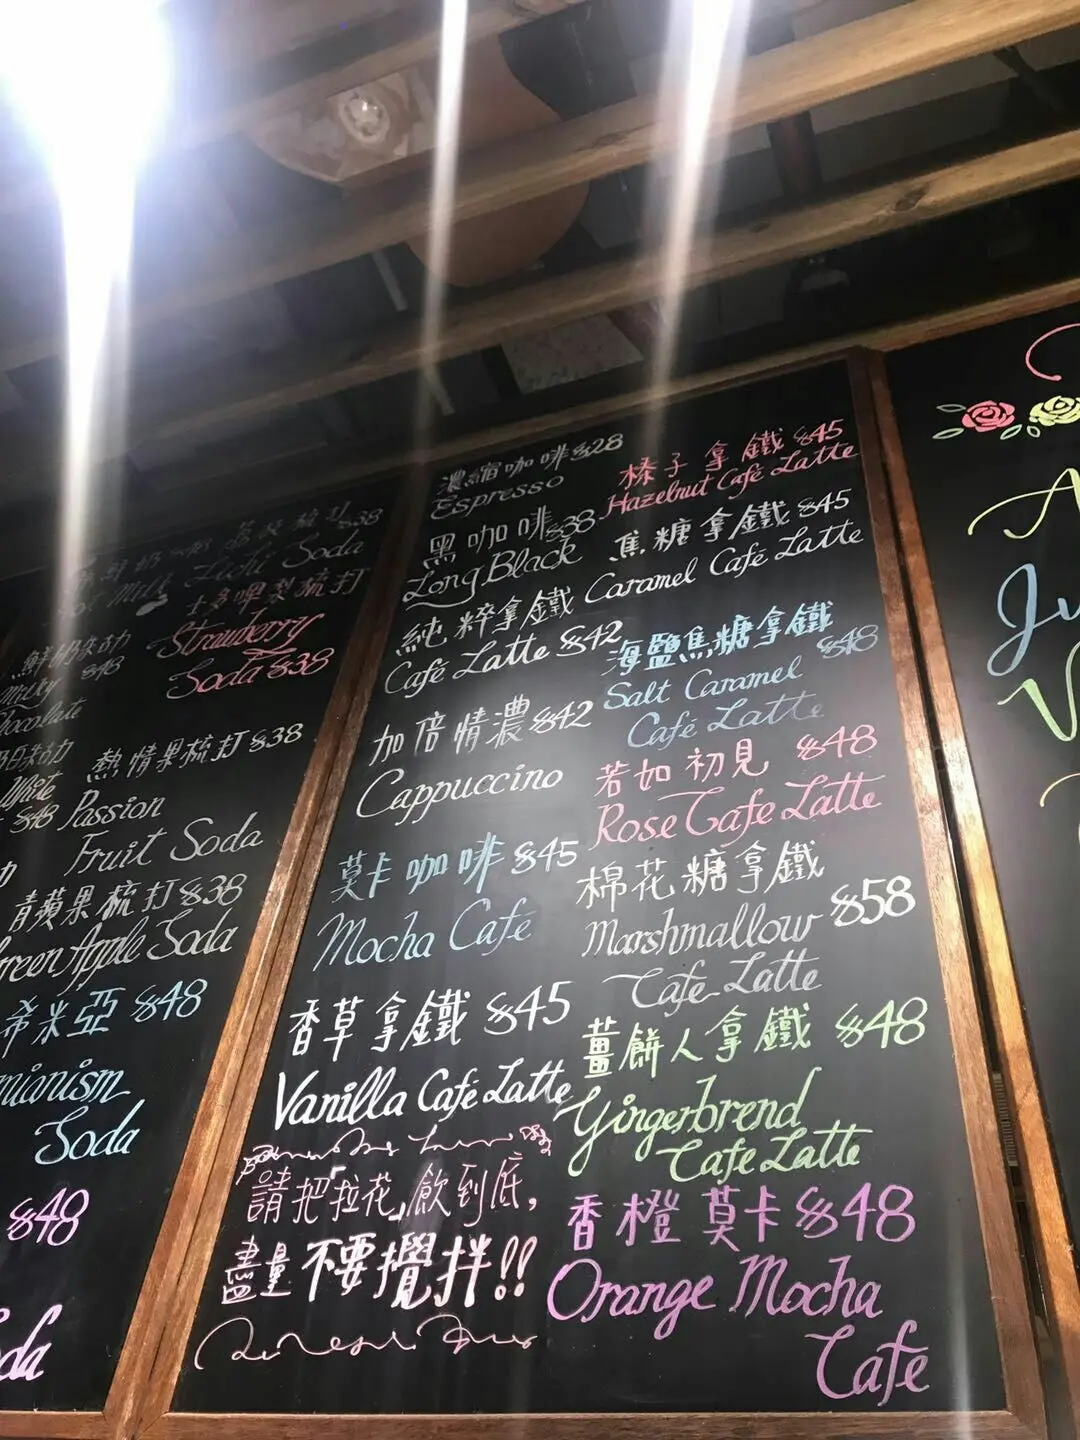 荔枝梳打
$38
Lichi Soda
士多啤梨梳打
Strawberry
Soda $38
鮮奶朱古力
$48
Chocolate
熱情果梳打 $38
Passion
Fruit Soda
White
$48
青蘋果梳打 $38
Green Apple Soda
希米亞 $48
mianism
Soda
$48
濃縮咖啡 $28
Espresso
黑咖啡 $38
Long Black
純粹拿鐵
Café Latte $42
加倍情濃 $42
Cappuccino
莫卡咖啡 $45
Mocha Café
香草拿鐵 $45
Vanilla Café Latte
請把「拉花」飲到底,
盡量不要攪拌!!
榛子拿鐵 $45
Hazelnut Café Latte
焦糖拿鐵 $45
Caramel Café Latte
海鹽焦糖拿鐵
$48
Salt Caramel
Café Latte
若如初見 $48
Rose Cafe Latte
棉花糖拿鐵
$58
Marshmallow
Cafe Latte
薑餅人拿鐵 $48
Gingerbrend
Cafe Latte
香橙莫卡 $48
Orange Mocha
Cafe